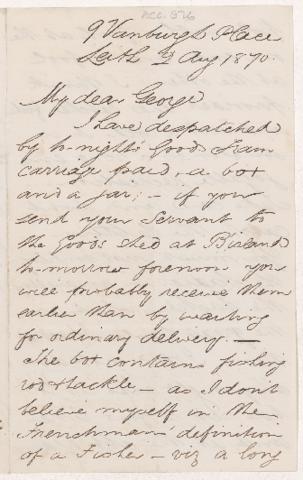 Acc. 576
9 Vanburgh Place
Leith Aug 1870.
My dear George
I have despatched
by to-night's Goods train
carriage paid, a box
and a jar; - if you
send your Servant to
the Goods shed at
to-morrow forenoon you
will probably receive them
earlier than by waiting
for ordinary delivery. —
The box contains fishing
rod & tackle - as I don't
believe myself in the
Frenchman's definition
of a Fisher - viz a long